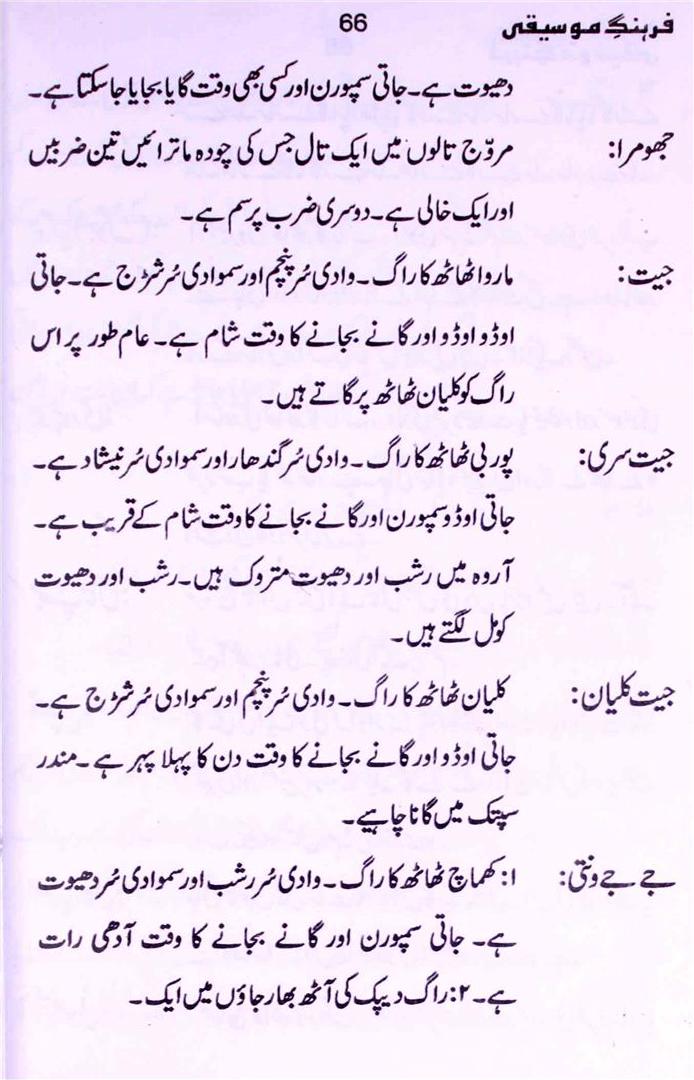 فرہنگِ موسیقی 66
دھیوت ہے۔ جاتی سمپورن اور کسی بھی وقت گایا بجایا جا سکتا ہے۔
جھومرا: مروّج تالوں میں ایک تال جس کی چودہ ماترائیں تین ضربیں
اور ایک خالی ہے۔ دوسری ضرب پر سم ہے۔
جیت: ماروا ٹھاٹھ کا راگ۔ وادی سُر پنچم اور سموادی سُر شڑج ہے۔ جاتی
اوڈو اوڈو اور گانے بجانے کا وقت شام ہے۔ عام طور پر اس
راگ کو کلیان ٹھاٹھ پر گاتے ہیں۔
جیت سری: پوربی ٹھاٹھ کا راگ۔ وادی سُر گندھار اور سموادی سُر نیشاد ہے۔
جاتی اوڈو سمپورن اور گانے بجانے کا وقت شام کے قریب ہے۔
آروہ میں رشب اور دھیوت متروک ہیں۔ رشب اور دھیوت
کومل لگتے ہیں۔
جیت کلیان: کلیان ٹھاٹھ کا راگ۔ وادی سُر پنچم اور سموادی سُر شڑج ہے۔
جاتی اوڈو اور گانے بجانے کا وقت دن کا پہلا پہر ہے۔ مندر
سپتک میں گانا چاہیے۔
جے جے ونتی: ۱: کھماچ ٹھاٹھ کا راگ۔ وادی سُر رشب اور سموادی سُر دھیوت
ہے۔ جاتی سمپورن اور گانے بجانے کا وقت آدھی رات
ہے۔ ۲: راگ دیپک کی آٹھ بھارجاؤں میں ایک۔